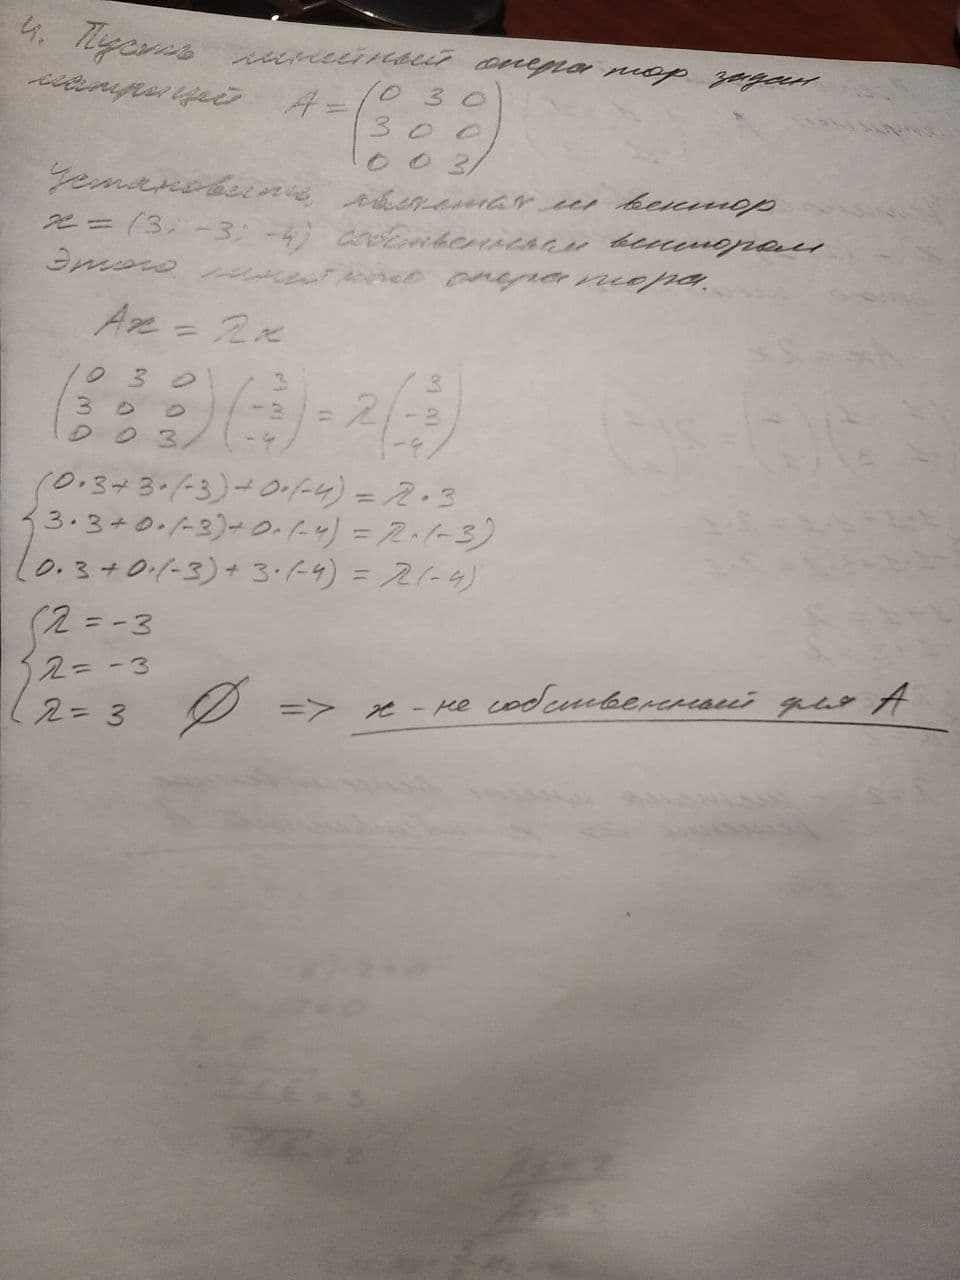 4. Пусть линейный оператор задан
матрицей A = (0 3 0
3 0 0
0 0 3)
Установить, является ли вектор
x = (3; -3; -4) собственным вектором
этого линейного оператора.
Ax = λx
(0 3 0) (3) = λ (3)
(3 0 0) (-3) (-3)
(0 0 3) (-4) (-4)
0·3+3·(-3)+0·(-4) = λ·3
3·3+0·(-3)+0·(-4) = λ·(-3)
0·3+0·(-3)+3·(-4) = λ(-4)
λ = -3
λ = -3
λ = 3 ∅ => x - не собственный для A